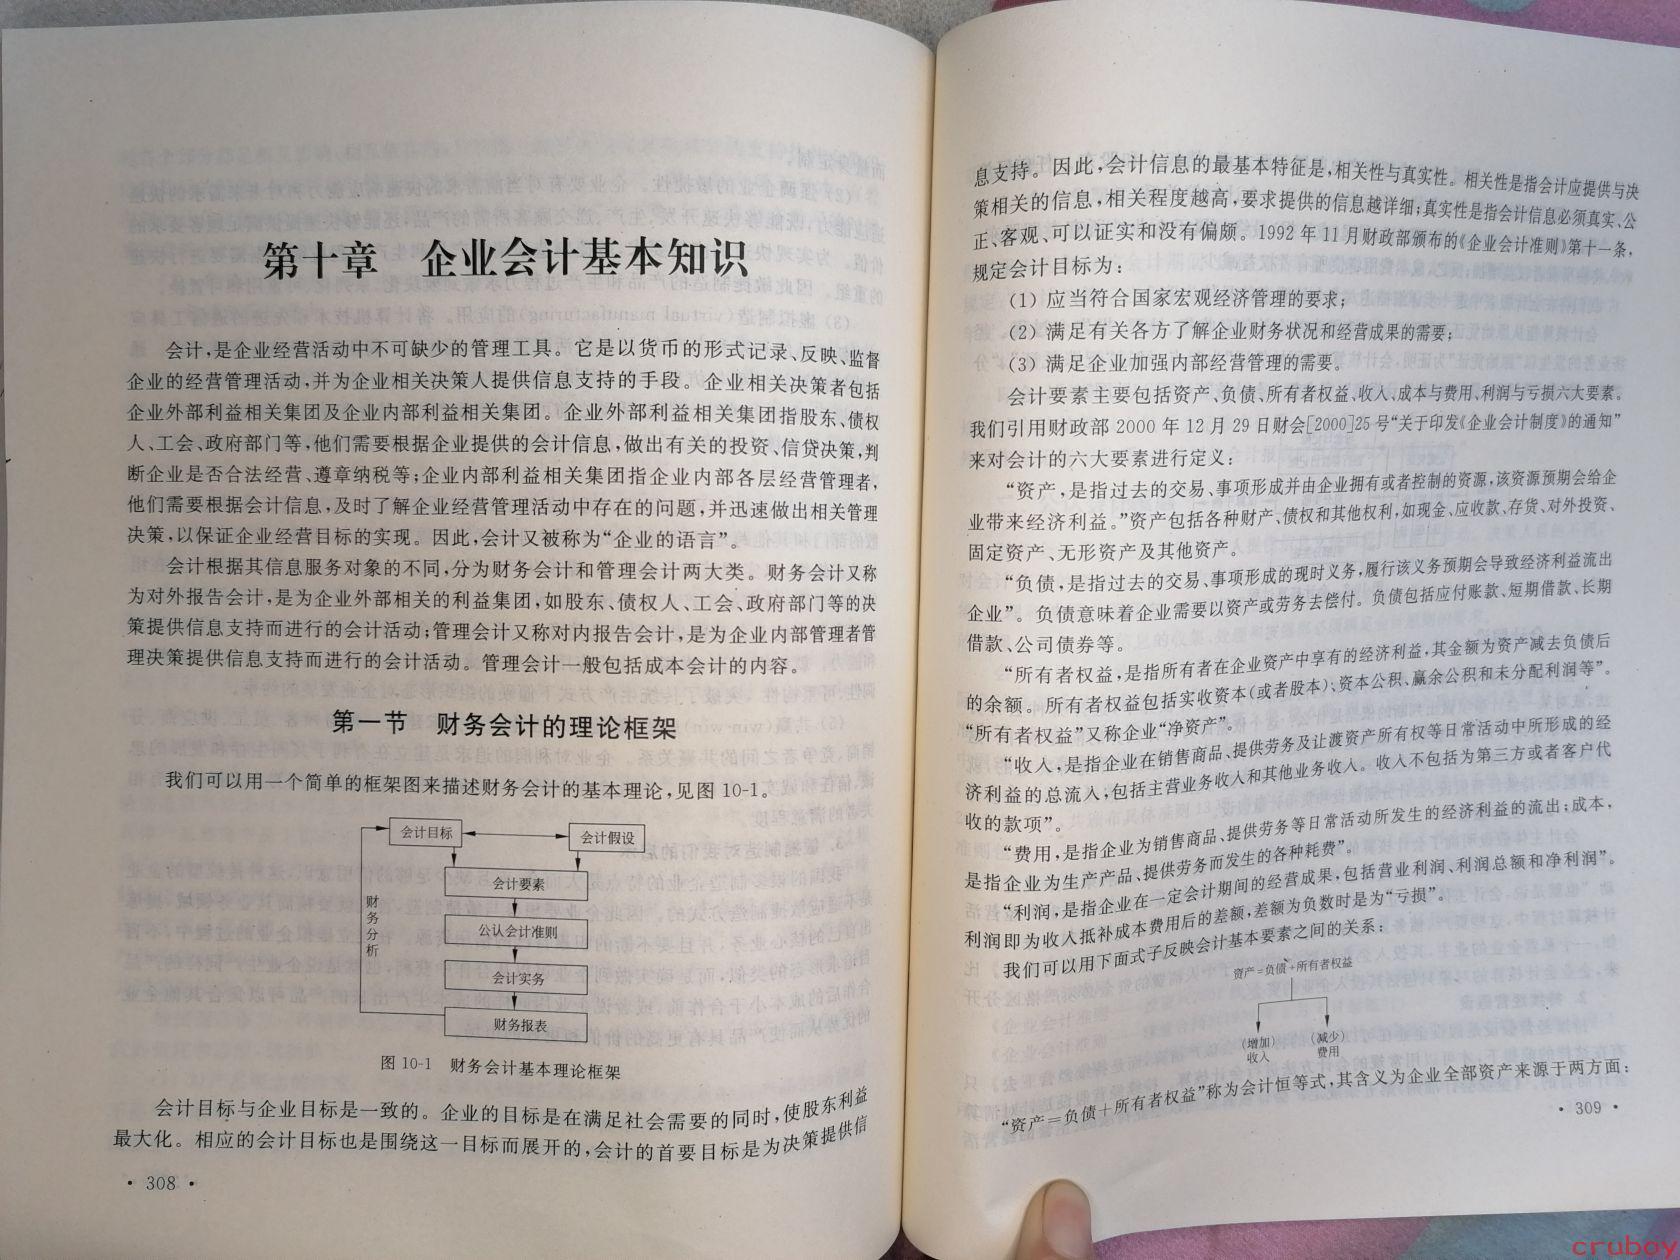 第十章 企业会计基本知识
会计,是企业经营活动中不可缺少的管理工具。它是以货币的形式记录、反映、监督
企业的经营管理活动,并为企业相关决策人提供信息支持的手段。企业相关决策者包括
企业外部利益相关集团及企业内部利益相关集团。企业外部利益相关集团指股东、债权
人、工会、政府部门等,他们需要根据企业提供的会计信息,做出有关的投资、信贷决策,判
断企业是否合法经营、遵章纳税等;企业内部利益相关集团指企业内部各层经营管理者,
他们需要根据会计信息,及时了解企业经营管理活动中存在的问题,并迅速做出相关管理
决策,以保证企业经营目标的实现。因此,会计又被称为“企业的语言”。
会计根据其信息服务对象的不同,分为财务会计和管理会计两大类。财务会计又称
为对外报告会计,是为企业外部相关的利益集团,如股东、债权人、工会、政府部门等的决
策提供信息支持而进行的会计活动;管理会计又称对内报告会计,是为企业内部管理者管
理决策提供信息支持而进行的会计活动。管理会计一般包括成本会计的内容。
第一节 财务会计的理论框架
我们可以用一个简单的框架图来描述财务会计的基本理论,见图 10-1。
会计目标
会计假设
会计要素
财务分析
公认会计准则
会计实务
财务报表
图 10-1 财务会计基本理论框架
会计目标与企业目标是一致的。企业的目标是在满足社会需要的同时,使股东利益
最大化。相应的会计目标也是围绕这一目标而展开的,会计的首要目标是为决策提供信
· 308 ·
息支持。因此,会计信息的最基本特征是,相关性与真实性。相关性是指会计应提供与决
策相关的信息,相关程度越高,要求提供的信息越详细;真实性是指会计信息必须真实、公
正、客观、可以证实和没有偏颇。1992 年 11 月财政部颁布的《企业会计准则》第十一条,
规定会计目标为:
(1) 应当符合国家宏观经济管理的要求;
(2) 满足有关各方了解企业财务状况和经营成果的需要;
(3) 满足企业加强内部经营管理的需要。
会计要素主要包括资产、负债、所有者权益、收入、成本与费用、利润与亏损六大要素。
我们引用财政部 2000 年 12 月 29 日财会[2000]25 号“关于印发《企业会计制度》的通知”
来对会计的六大要素进行定义:
“资产,是指过去的交易、事项形成并由企业拥有或者控制的资源,该资源预期会给企
业带来经济利益。”资产包括各种财产、债权和其他权利,如现金、应收款、存货、对外投资、
固定资产、无形资产及其他资产。
“负债,是指过去的交易、事项形成的现时义务,履行该义务预期会导致经济利益流出
企业”。负债意味着企业需要以资产或劳务去偿付。负债包括应付账款、短期借款、长期
借款、公司债券等。
“所有者权益,是指所有者在企业资产中享有的经济利益,其金额为资产减去负债后
的余额。所有者权益包括实收资本(或者股本)、资本公积、赢余公积和未分配利润等”。
“所有者权益”又称企业“净资产”。
“收入,是指企业在销售商品、提供劳务及让渡资产所有权等日常活动中所形成的经
济利益的总流入,包括主营业务收入和其他业务收入。收入不包括为第三方或者客户代
收的款项”。
“费用,是指企业为销售商品、提供劳务等日常活动所发生的经济利益的流出;成本,
是指企业为生产产品、提供劳务而发生的各种耗费”。
“利润,是指企业在一定会计期间的经营成果,包括营业利润、利润总额和净利润”。
利润即为收入抵补成本费用后的差额,差额为负数时是为“亏损”。
我们可以用下面式子反映会计基本要素之间的关系:
资产=负债+所有者权益
(增加) (减少)
收入 费用
“资产=负债+所有者权益”称为会计恒等式,其含义为企业全部资产来源于两方面:
· 309 ·
cruboy